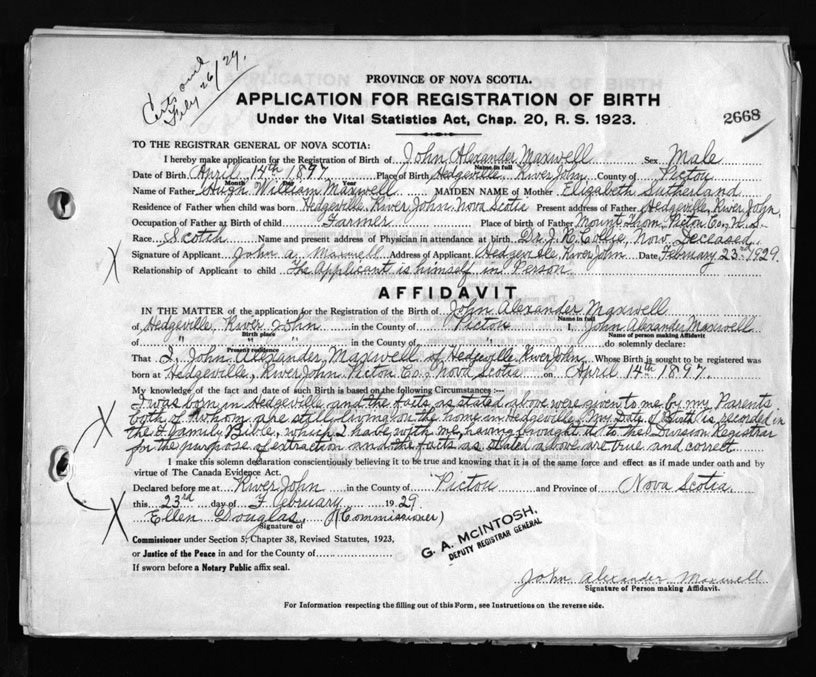 Certs and
Feby 26/29.
PROVINCE OF NOVA SCOTIA.
APPLICATION FOR REGISTRATION OF BIRTH
Under the Vital Statistics Act, Chap. 20, R. S. 1923.
2668
TO THE REGISTRAR GENERAL OF NOVA SCOTIA:
I hereby make application for the Registration of Birth of John Alexander Maxwell Sex Male
Name in full
Date of Birth April 14th 1897 Place of Birth Hedgeville River John County of Pictou
Month Day Year
Name of Father Hugh William Maxwell MAIDEN NAME of Mother Elizabeth Sutherland
Residence of Father when child was born Hedgeville River John Nova Scotia Present address of Father Hedgeville, River John.
Occupation of Father at Birth of child Farmer Place of birth of Father Mount Thom, Pictou Co., N. S.
Race Scotch Name and present address of Physician in attendance at birth Dr. J. R. Collie, Now Deceased.
Signature of Applicant John A. Maxwell Address of Applicant Hedgeville River John Date February 23rd 1929.
Relationship of Applicant to child The Applicant is himself in Person
AFFIDAVIT
IN THE MATTER of the application for the Registration of the Birth of John Alexander Maxwell
Name in full
of Hedgeville, River John in the County of Pictou I, John Alexander Maxwell
Birth place Name of person making Affidavit
of " " " in the County of " do solemnly declare:
Present residence
That I, John Alexander, Maxwell of Hedgeville River John Whose Birth is sought to be registered was
born at Hedgeville, River John Pictou Co. Nova Scotia on April 14th 1897.
My knowledge of the fact and date of such Birth is based on the following Circumstances :—
I was born in Hedgeville and the facts as stated above were given to me by my Parents
both of whom are still living on the home in Hedgeville. My Date of Birth is recorded in
the Family Bible, which I have with me, having brought it to the Division Registrar
for the purpose of extraction and the facts as stated above are true and correct
I make this solemn declaration conscientiously believing it to be true and knowing that it is of the same force and effect as if made under oath and by
virtue of The Canada Evidence Act.
Declared before me at River John in the County of Pictou and Province of Nova Scotia.
this 23rd day of February 1929.
Ellen Douglas (Commissioner)
Signature of
Commissioner under Section 5, Chapter 38, Revised Statutes, 1923,
or Justice of the Peace in and for the County of
If sworn before a Notary Public affix seal.
G. A. McINTOSH,
DEPUTY REGISTRAR GENERAL
John Alexander Maxwell
Signature of Person making Affidavit.
For Information respecting the filling out of this Form, see Instructions on the reverse side.